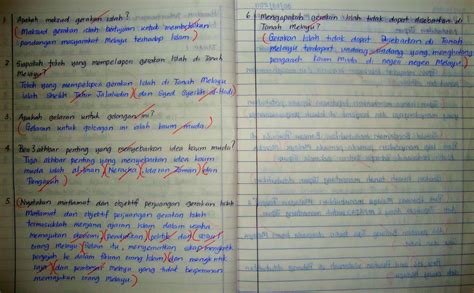 1. Apakah maksud gerakan islah ?
(Maksud gerakan islah bertujuan untuk membetulkan
pandangan masyarakat Melayu terhadap Islam.)
2. Siapakah tokoh yang mempelopori gerakan Islah di Tanah
Melayu?
Tokoh yang mempelopori gerakan Islah di Tanah Melayu
ialah Sheikh Tahir Jalaluddin) dan Syed Syeikh al-Hadi)
3. Apakah gelaran untuk golongan ini?
(Gelaran untuk golongan ini ialah kaum muda.)
4. Beri 3 akhbar penting yang menyebarkan idea kaum muda?
Tiga akhbar penting yang menyebarkan idea kaum
muda ialah al-Imam)(Neracha)(Idaran Zaman)(dan
Pengasuh)
5. (Nyatakan matlamat dan objektif perjuangan gerakan Islah
Matlamat dan objektif perjuangan gerakan Islah
termasuklah mengenai ajaran Islam dalam usaha
kemajuan ekonomi)(pendidikan)(politik dan)(sosial
orang Melayu)(Selain itu, mengecam
penjajah ke dalam fikiran orang Islam)(dan mengkritik
raja)(dan pembesar Melayu yang tidak berperanan
memajukan orang Melayu.)
6. Mengapakah gerakan Islah tidak dapat disebarkan di
Tanah Melayu?
(Gerakan Islah tidak dapat disebarkan di Tanah
Melayu terdapat undang-undang yang menghalang
pengaruh kaum Muda di negeri-negeri Melayu.)